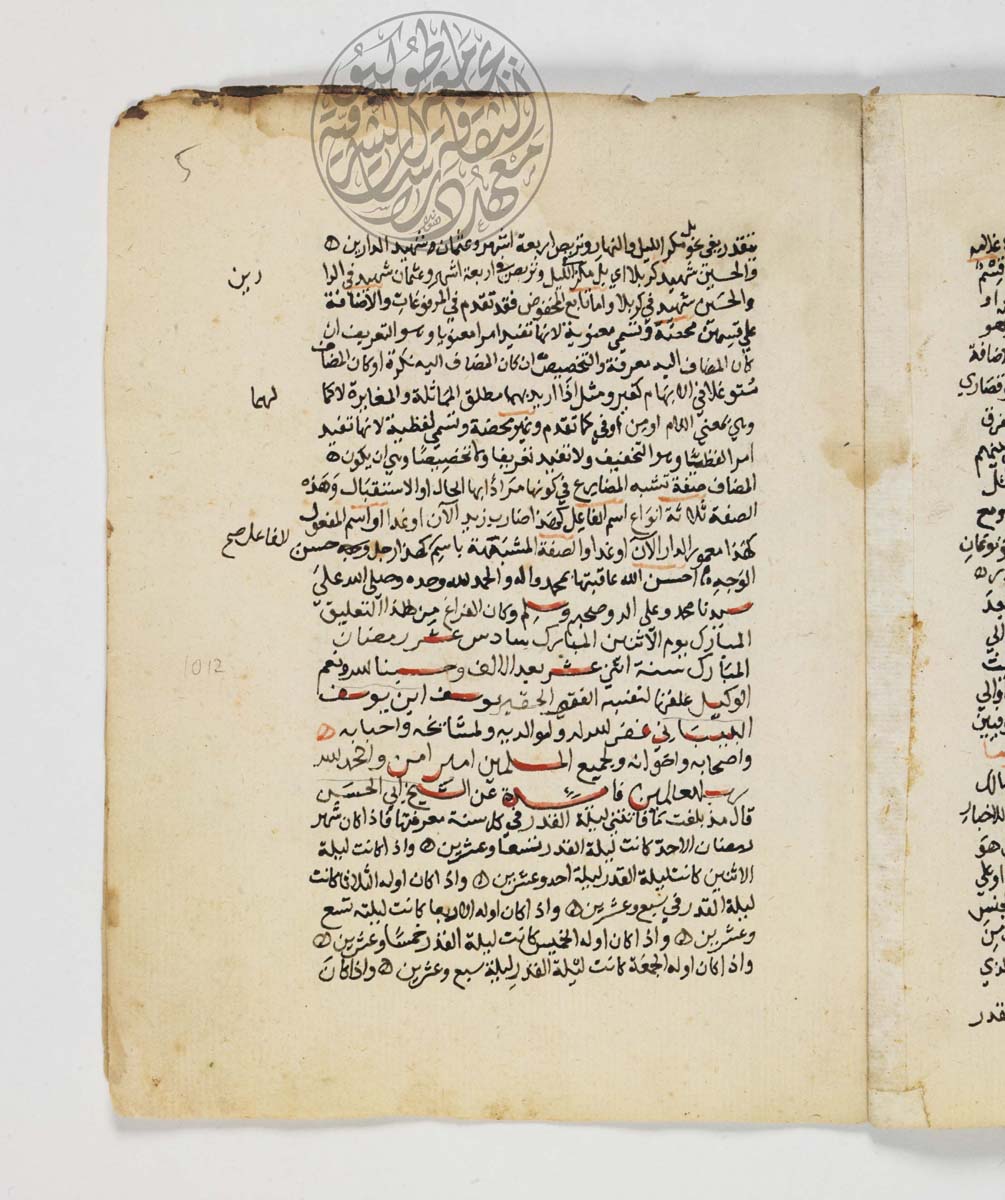 فتقدر بفي نحو بل مكر الليل والنهار وتربص اربعة اشهر وعثمان شهيد الدارين ه
والحسين شهيد كربلا اي بل مكر في الليل وتربص في اربعة اشهر وعثمان شهيد في الدا
رين
والحسين شهيد في كربلا واما تابع المخفوض فقد تقدم في المرفوعات والاضافة
على قسمين محضة وتسمى معنوية لانها تفيد امرا معنويا وهو التعريف ان
كان المضاف اليه معرفة والتخصيص ان كان المضاف اليه نكرة او كان المضاف
متوغلا في الابهام كغير ومثل اذا اريد بهما مطلق المماثلة والمغايرة لا كما
لهما
وهي بمعنى اللام او من او في كما تقدم وغير محضة وتسمى لفظية لانها تفيد
امرا لفظيا وهو التخفيف ولا تفيد تعريفا ولا تخصيصا وهي ان يكون ه
المضاف صفة تشبه المضارع في كونها مرادا بها الحال او الاستقبال وهذه
الصفة ثلاثة انواع اسم الفاعل كهذا ضارب زيد الآن او غدا او اسم المفعول
كهذا معمور الدار الآن او غدا والصفة المشبهة باسم كهذا رجل حسن
للفاعل صح
الوجه احسن الله عاقبتها بمحمد واله والحمد لله وحده وصلى الله على
سيدنا محمد وعلى اله وصحبه وسلم وكان الفراغ من هذا التعليق
المبارك يوم الاثنين المبارك سادس عشر رمضان
المبارك سنة اثني عشر بعد الالف وحسبنا الله ونعم
1012
الوكيل علقها لنفسه الفقير الحقير يوسف ابن يوسف
غفر الله له ولوالديه ولمشائخه واحبابه ه
واصحابه واخوانه ولجميع المسلمين امين امين والحمد لله
رب العالمين فائدة عن الشيخ ابي الحسين
قال مذ بلغت ما فاتتني ليلة القدر في كل سنة معرفتها فاذا كان شهر
رمضان الاحد كانت ليلة القدر تسعا وعشرين ه واذا كانت ليلة
الاثنين كانت ليلة القدر ليلة احد وعشرين ه واذا كان اوله الثلاثا كانت
ليلة القدر في سبع وعشرين ه واذا كان اوله الاربعا كانت ليلته تسع
وعشرين ه واذا كان اوله الخميس كانت ليلة القدر خمسا وعشرين ه
واذا كان اوله الجمعة كانت ليلة القدر ليلة سبع وعشرين ه واذا كان